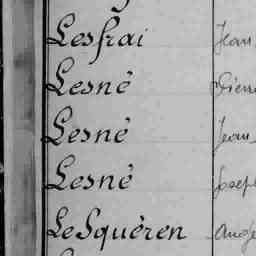 Lesfrai Jean
Lesné Pierre
Lesné Jean
Lesné Joseph
LeSquéren Ange